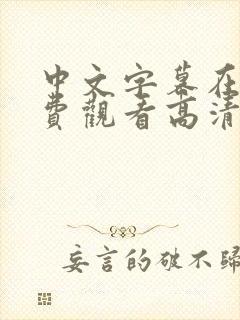 中文字幕在
費觀看高清
妄言的破不歸